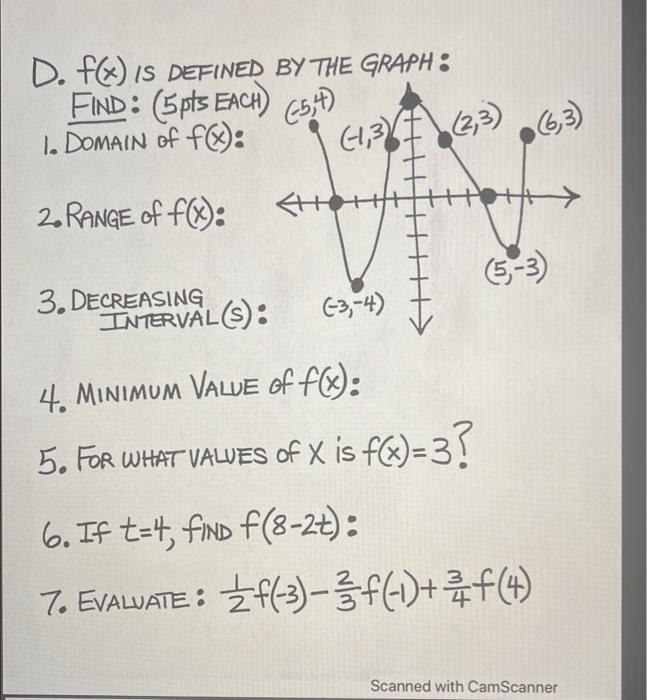 D. f(x) IS DEFINED BY THE GRAPH:
FIND: (5pts EACH)
(-5,4)
(-1,3)
(2,3)
(6,3)
1. DOMAIN of f(x):
2. RANGE of f(x):
(5,-3)
3. DECREASING
INTERVAL(S):
(-3,-4)
4. MINIMUM VALUE of f(x):
5. FOR WHAT VALUES of X is f(x)=3?
6. If t=4, FIND f(8-2t):
7. EVALUATE: 1/2 f(-3) - 2/3 f(-1) + 3/4 f(4)
Scanned with CamScanner